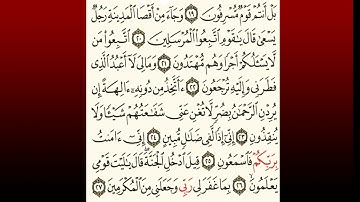 بَلْ أَنتُمْ قَوْمٌ مُّسْرِفُونَ ١٩ وَجَآءَ مِنْ أَقْصَا ٱلْمَدِينَةِ رَجُلٌ
يَسْعَىٰ قَالَ يَٰقَوْمِ ٱتَّبِعُوا۟ ٱلْمُرْسَلِينَ ٢٠ ٱتَّبِعُوا۟ مَن
لَّا يَسْـَٔلُكُمْ أَجْرًا وَهُم مُّهْتَدُونَ ٢١ وَمَالِىَ لَآ أَعْبُدُ ٱلَّذِى
فَطَرَنِى وَإِلَيْهِ تُرْجَعُونَ ٢٢ ءَأَتَّخِذُ مِن دُونِهِۦٓ ءَالِهَةً إِن
يُرِدْنِ ٱلرَّحْمَٰنُ بِضُرٍّ لَّا تُغْنِ عَنِّى شَفَٰعَتُهُمْ شَيْـًٔا وَلَا
يُنقِذُونِ ٢٣ إِنِّىٓ إِذًا لَّفِى ضَلَٰلٍ مُّبِينٍ ٢٤ إِنِّىٓ ءَامَنتُ
بِرَبِّكُمْ فَٱسْمَعُونِ ٢٥ قِيلَ ٱدْخُلِ ٱلْجَنَّةَ قَالَ يَٰلَيْتَ قَوْمِى
يَعْلَمُونَ ٢٦ بِمَا غَفَرَ لِى رَبِّى وَجَعَلَنِى مِنَ ٱلْمُكْرَمِينَ ٢٧